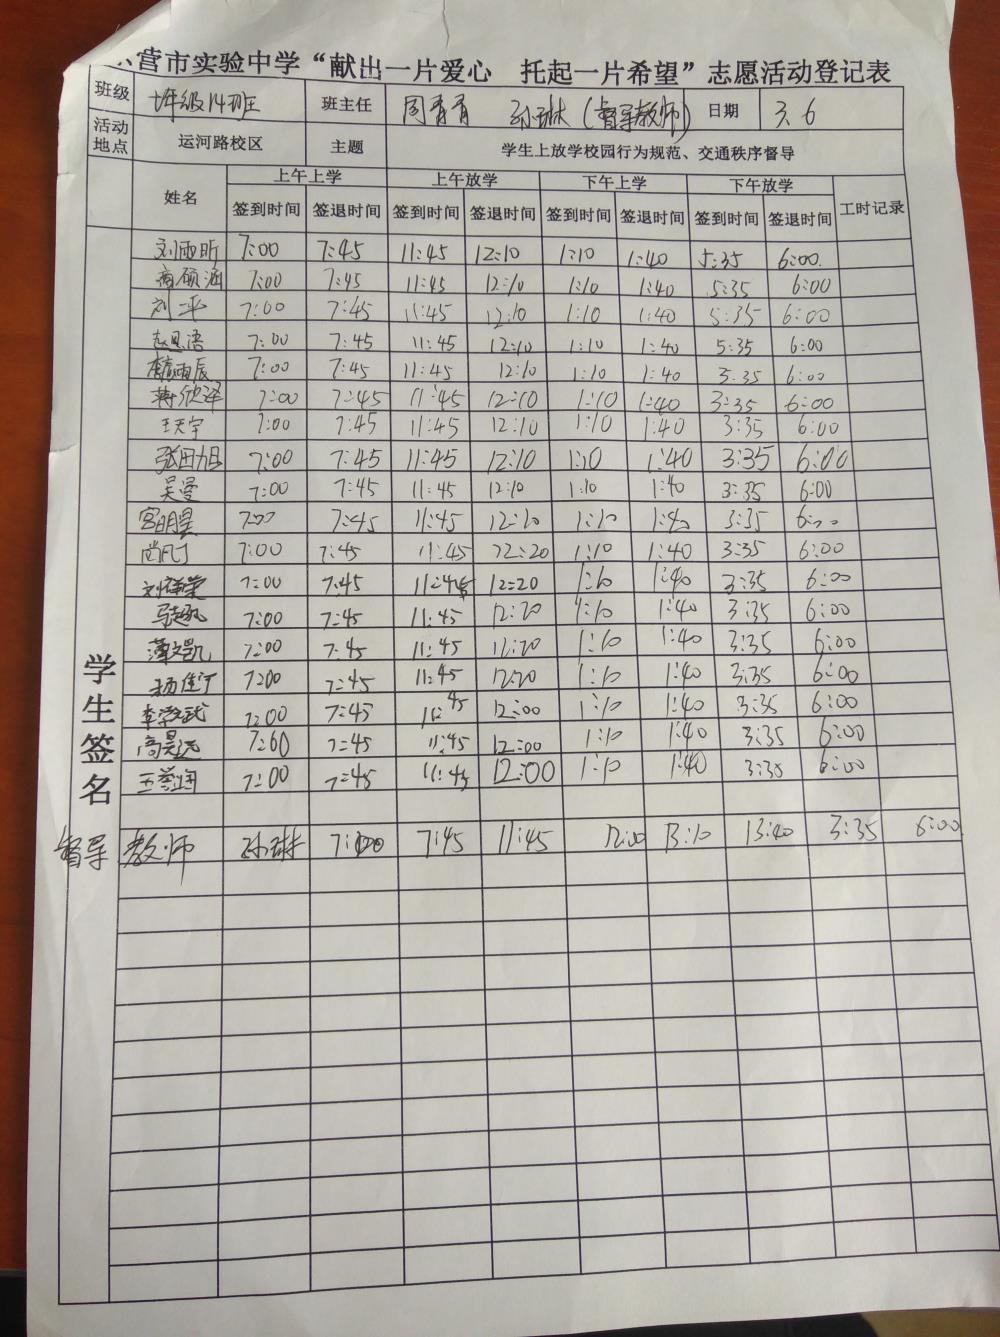 营市实验中学“献出一片爱心 托起一片希望”志愿活动登记表
班级 七年级14班 班主任 周青青 孙琳(督导教师) 日期 3.6
活动地点 运河路校区 主题 学生上放学校园行为规范、交通秩序督导
姓名 上午上学 上午放学 下午上学 下午放学 工时记录
签到时间 签退时间 签到时间 签退时间 签到时间 签退时间 签到时间 签退时间
学生签名
刘雨昕 7:00 7:45 11:45 12:10 1:10 1:40 5:35 6:00
商硕涵 7:00 7:45 11:45 12:10 1:10 1:40 5:35 6:00
刘一平 7:00 7:45 11:45 12:10 1:10 1:40 5:35 6:00
赵思语 7:00 7:45 11:45 12:10 1:10 1:40 5:35 6:00
李雨辰 7:00 7:45 11:45 12:10 1:10 1:40 3:35 6:00
蒋欣泽 7:00 7:45 11:45 12:10 1:10 1:40 3:35 6:00
王天宇 7:00 7:45 11:45 12:10 1:10 1:40 3:35 6:00
张田旭 7:00 7:45 11:45 12:10 1:10 1:40 3:35 6:00
吴曼 7:00 7:45 11:45 12:10 1:10 1:40 3:35 6:00
宫明昊 7:00 7:45 11:45 12:20 1:10 1:40 3:35 6:00
尚凡丁 7:00 7:45 11:45 12:20 1:10 1:40 3:35 6:00
刘 7:00 7:45 11:45 12:20 1:10 1:40 3:35 6:00
马 7:00 7:45 11:45 12:20 1:10 1:40 3:35 6:00
薄文凯 7:00 7:45 11:45 12:20 1:10 1:40 3:35 6:00
杨佳宁 7:00 7:45 11:45 12:20 1:10 1:40 3:35 6:00
李 7:00 7:45 11:45 12:00 1:10 1:40 3:35 6:00
商昊远 7:60 7:45 11:45 12:00 1:10 1:40 3:35 6:00
王 7:00 7:45 11:45 12:00 1:10 1:40 3:35 6:00
督导教师 孙琳 7:00 7:45 11:45 12:00 13:10 13:40 3:35 6:00